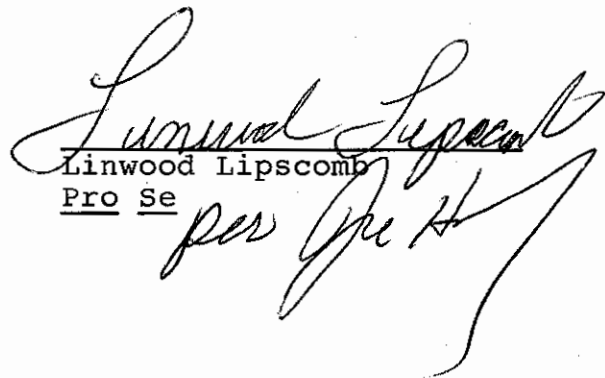 Linwood Lipscomb
Linwood Lipscomb
Pro Se
per